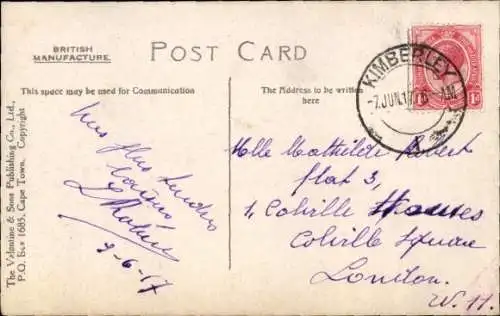 BRITISH
MANUFACTURE.
POST CARD
This space may be used for Communication
The Address to be written
here
KIMBERLEY
7 JUN 17
AM
The Valentine & Sons Publishing Co., Ltd.,
P.O. Box 1685, Cape Town. Copyright
Mes plus tendres
7-6-17
Mlle Mathilde Robert
flat 3,
1, Colville Houses
Colville Square
London.
W. 11.